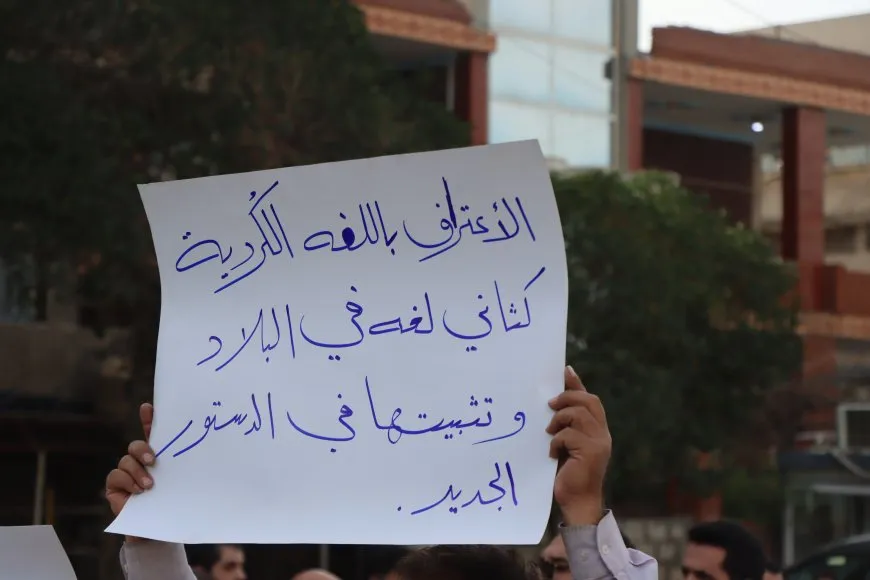 الأعتراف باللغه الكُردية
كثاني لغه في البلاد
و تثبيتها في الدستور
الجديد .